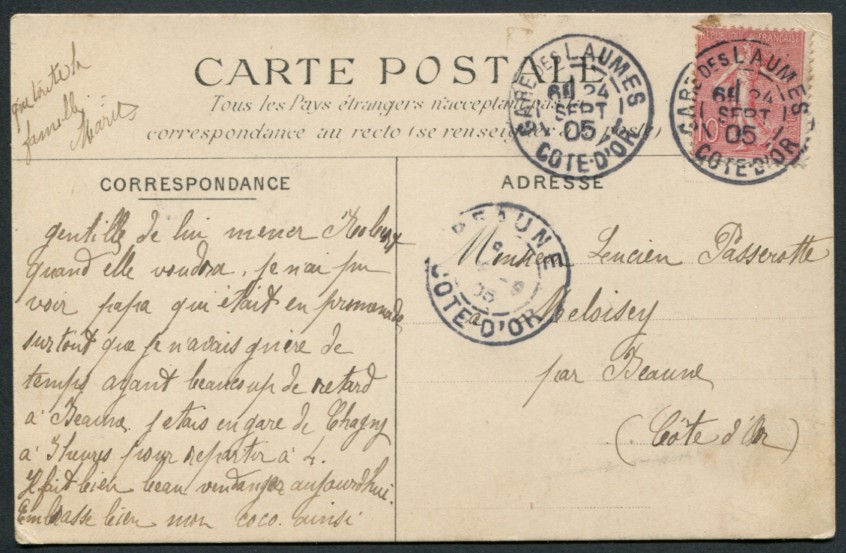 CARTE POSTALE
Tous les Pays étrangers n'acceptant pas la
correspondance au recto (se renseigner à la Poste)
CORRESPONDANCE
gentille de lui mener
quand elle voudra, je n'ai pu
voir papa qui était en promenade
surtout que je n'avais guère de
temps ayant beaucoup de retard
à Beaune, j'étais en gare de Chagny
à 3 heures pour repartir à 4.
Il fait bien beau vendanger aujourd'hui.
Embrasse bien mon coco. ainsi
que toute la
famille
ADRESSE
Monsieur Lucien Passerotte
à Meloisey
par Beaune
(Côte d'Or)
GARE DES LAUMES
24
SEPT
05
COTE-D'OR
REPUBLIQUE FRANÇAISE
10c
GARE DES LAUMES
24
SEPT
05
COTE-D'OR
BEAUNE
05
COTE-D'OR